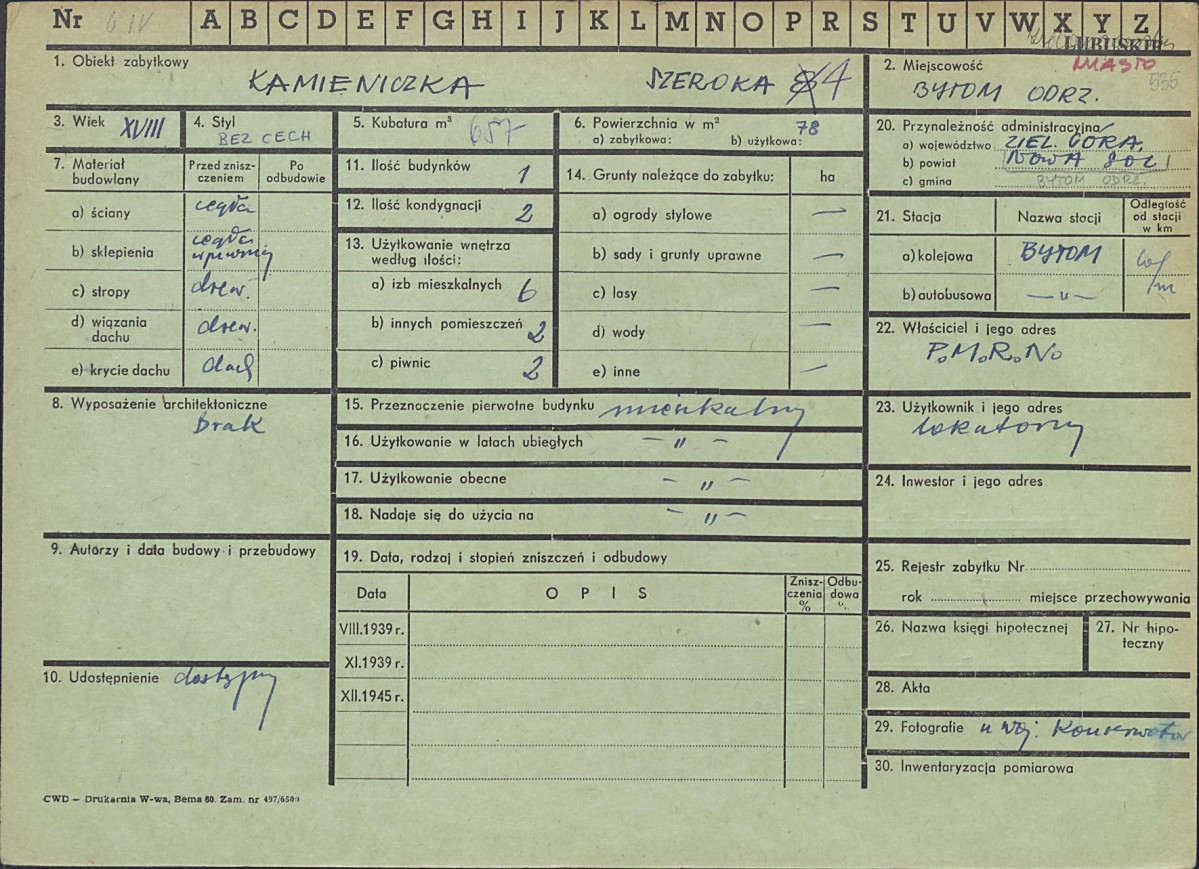 Nr 6 IV A B C D E F G H I J K L M N O P R S T U V W X Y Z
LUBUSKIE
1. Obiekt zabytkowy
KAMIENICZKA SZEROKA 4
2. Miejscowość MIASTO
BYTOM ODRZ. 535
3. Wiek XVIII
4. Styl
BEZ CECH
5. Kubatura m³ 657
6. Powierzchnia w m² 78
a) zabytkowa: b) użytkowa:
20. Przynależność administracyjna
a) województwo ZIEL. GÓRA.
b) powiat NOWA SÓL
c) gmina BYTOM ODRZ.
7. Materiał budowlany
Przed znisz-
czeniem
Po
odbudowie
a) ściany cegła
b) sklepienia cegła
w piwnicy
c) stropy drew.
d) wiązania
dachu drew.
e) krycie dachu dach
11. Ilość budynków 1
12. Ilość kondygnacji 2
13. Użytkowanie wnętrza
według ilości:
a) izb mieszkalnych 6
b) innych pomieszczeń 2
c) piwnic 2
14. Grunty należące do zabytku: ha
a) ogrody stylowe —
b) sady i grunty uprawne —
c) lasy —
d) wody —
e) inne —
21. Stacja Nazwa stacji
Odległość
od stacji
w km
a) kolejowa BYTOM
b) autobusowa — " —
22. Właściciel i jego adres
P.M.R.N.
8. Wyposażenie architektoniczne
Brak
15. Przeznaczenie pierwotne budynku mieszkalny
16. Użytkowanie w latach ubiegłych — " —
17. Użytkowanie obecne — " —
18. Nadaje się do użycia na — " —
23. Użytkownik i jego adres
lokatorzy
24. Inwestor i jego adres
9. Autorzy i data budowy i przebudowy
19. Data, rodzaj i stopień zniszczeń i odbudowy
Data O P I S
Znisz-
czenia
%
Odbu-
dowa
%
VIII.1939 r.
XI.1939 r.
XII.1945 r.
25. Rejestr zabytku Nr
rok miejsce przechowywania
26. Nazwa księgi hipotecznej
27. Nr hipo-
teczny
10. Udostępnienie dostępny
28. Akta
29. Fotografie u Woj. Konserwator
30. Inwentaryzacja pomiarowa
CWD — Drukarnia W-wa, Bema 60. Zam. nr 497/6500